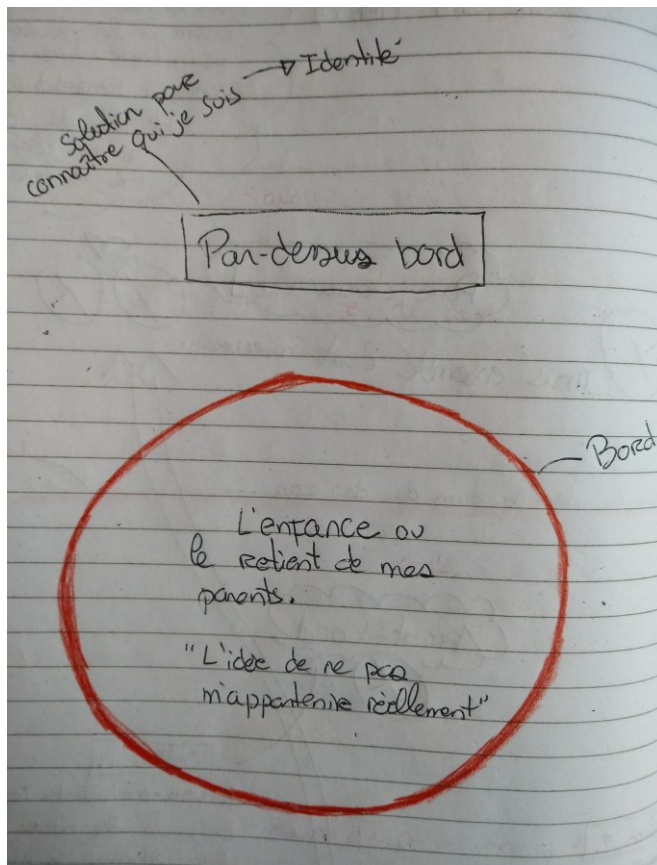 Identité
solution pour
connaître qui je suis
Par-dessus bord
Bord
L'enfance ou
le retient de mes
parents.
"L'idée de ne pas
m'appartenire réellement"